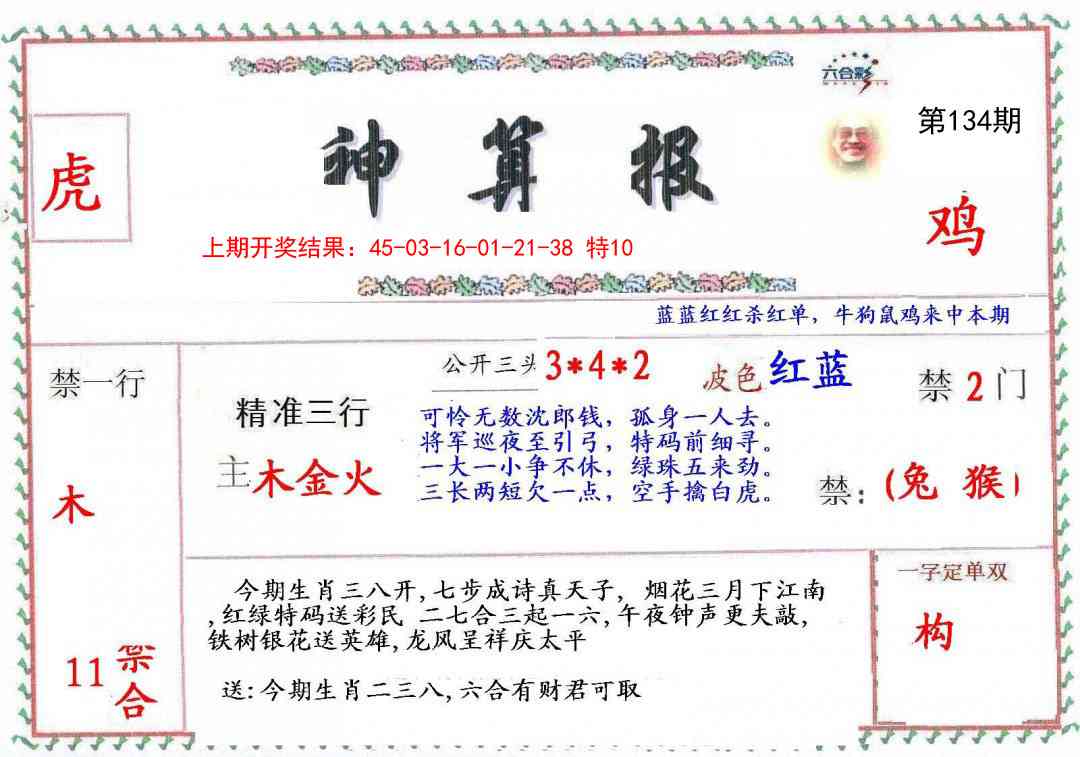 六合彩
第134期
虎
神算报
鸡
上期开奖结果：45-03-16-01-21-38 特10
蓝蓝红红杀红单，牛狗鼠鸡来中本期
禁一行
公开三头 3*4*2
波色 红蓝
禁 2 门
精准三行
可怜无数沈郎钱，孤身一人去。
将军巡夜至引弓，特码前细寻。
一大一小争不休，绿珠五来劲。
三长两短欠一点，空手擒白虎。
主 木金火
禁：(兔 猴)
木
一字定单双
构
今期生肖三八开,七步成诗真天子, 烟花三月下江南
,红绿特码送彩民 二七合三起一六,午夜钟声更夫敲,
铁树银花送英雄,龙风呈祥庆太平
送:今期生肖二三八,六合有财君可取
11 禁合